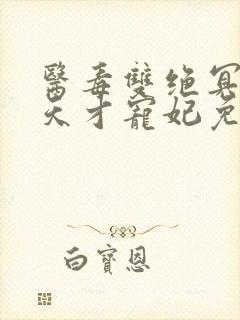 醫毒雙绝冥
天才寵妃免
白寶恩